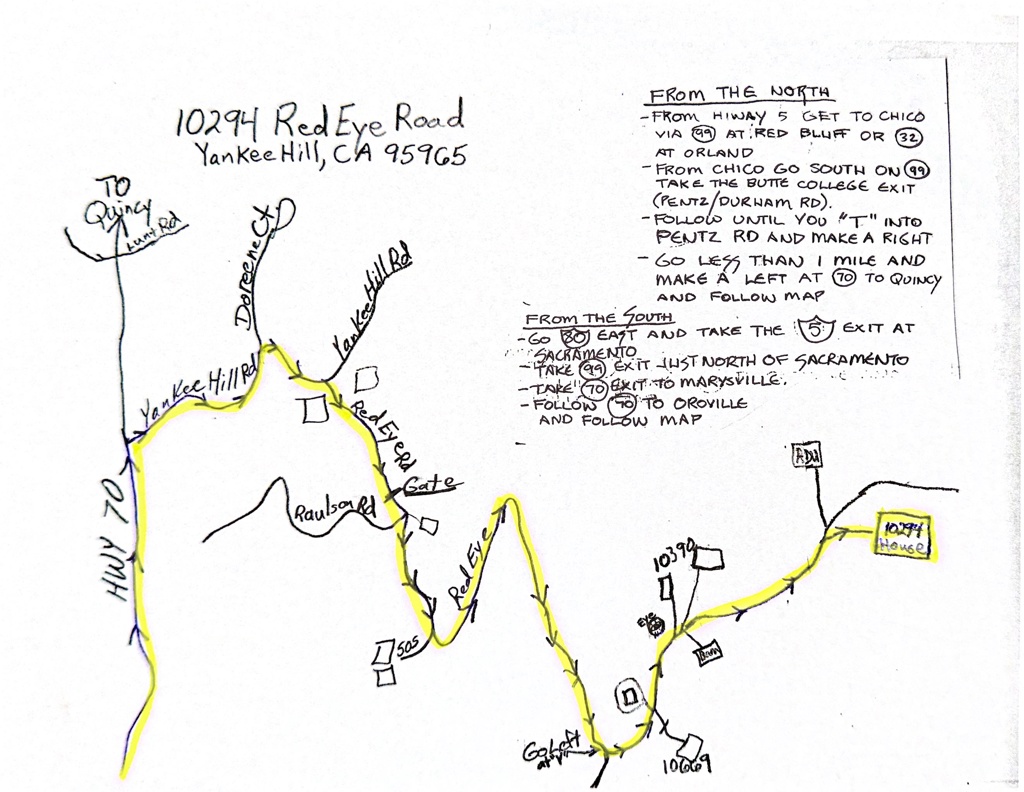 10294 Red Eye Road
Yankee Hill, CA 95965
FROM THE NORTH
- FROM HIWAY 5 GET TO CHICO
VIA 99 AT RED BLUFF OR 32
AT ORLAND
- FROM CHICO GO SOUTH ON 99
TAKE THE BUTTE COLLEGE EXIT
(PENTZ/DURHAM RD).
- FOLLOW UNTIL YOU "T" INTO
PENTZ RD AND MAKE A RIGHT
- GO LESS THAN 1 MILE AND
MAKE A LEFT AT 70 TO QUINCY
AND FOLLOW MAP
FROM THE SOUTH
- GO 80 EAST AND TAKE THE 5 EXIT AT
SACRAMENTO
- TAKE 99 EXIT JUST NORTH OF SACRAMENTO
- TAKE 70 EXIT TO MARYSVILLE.
- FOLLOW 70 TO OROVILLE
AND FOLLOW MAP
TO
Quincy
Lunt Rd
Doreene Ct
Yankee Hill Rd
Yankee Hill Rd
Red Eye Rd
Gate
Raulson Rd
HWY 70
Red Eye
505
ADU
10294
House
10390
EYE
Barn
Go Left
at Y
10669